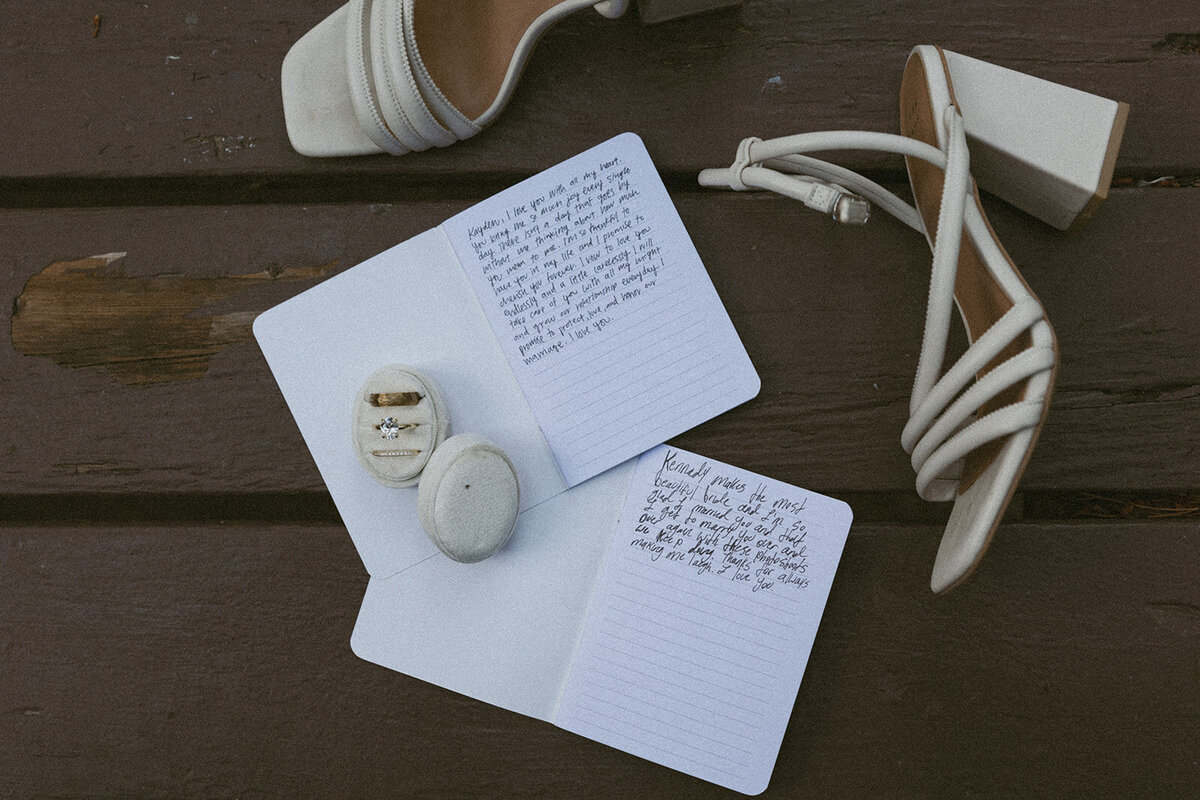 Kayden, I love you with all my heart.
You bring me so much joy every single
day. There isn't a day that goes by
without me thinking about how much
you mean to me. I'm so thankful to
have you in my life and I promise to
cherish you forever. I vow to love you
endlessly and a little carelessly. I will
take care of you with all my might
and grow our relationship everyday. I
promise to protect, love, and honor our
marriage. I love you.
Kennady makes the most
beautiful bride and I'm so
glad I married you and that
I get to marry you over and
over again with these photoshoots
we keep doing. Thanks for always
making me laugh. I love you.